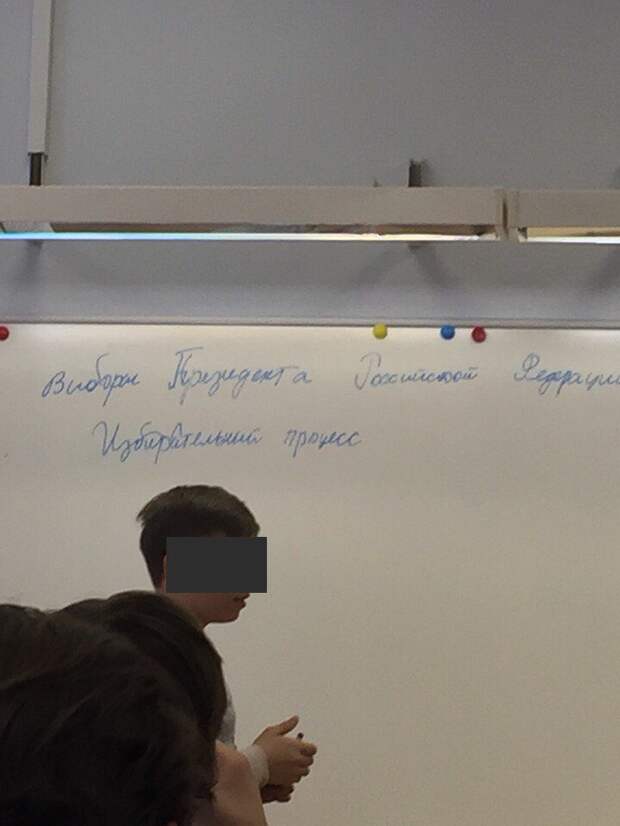 Выборы Президента Российской Федерации
Избирательный процесс